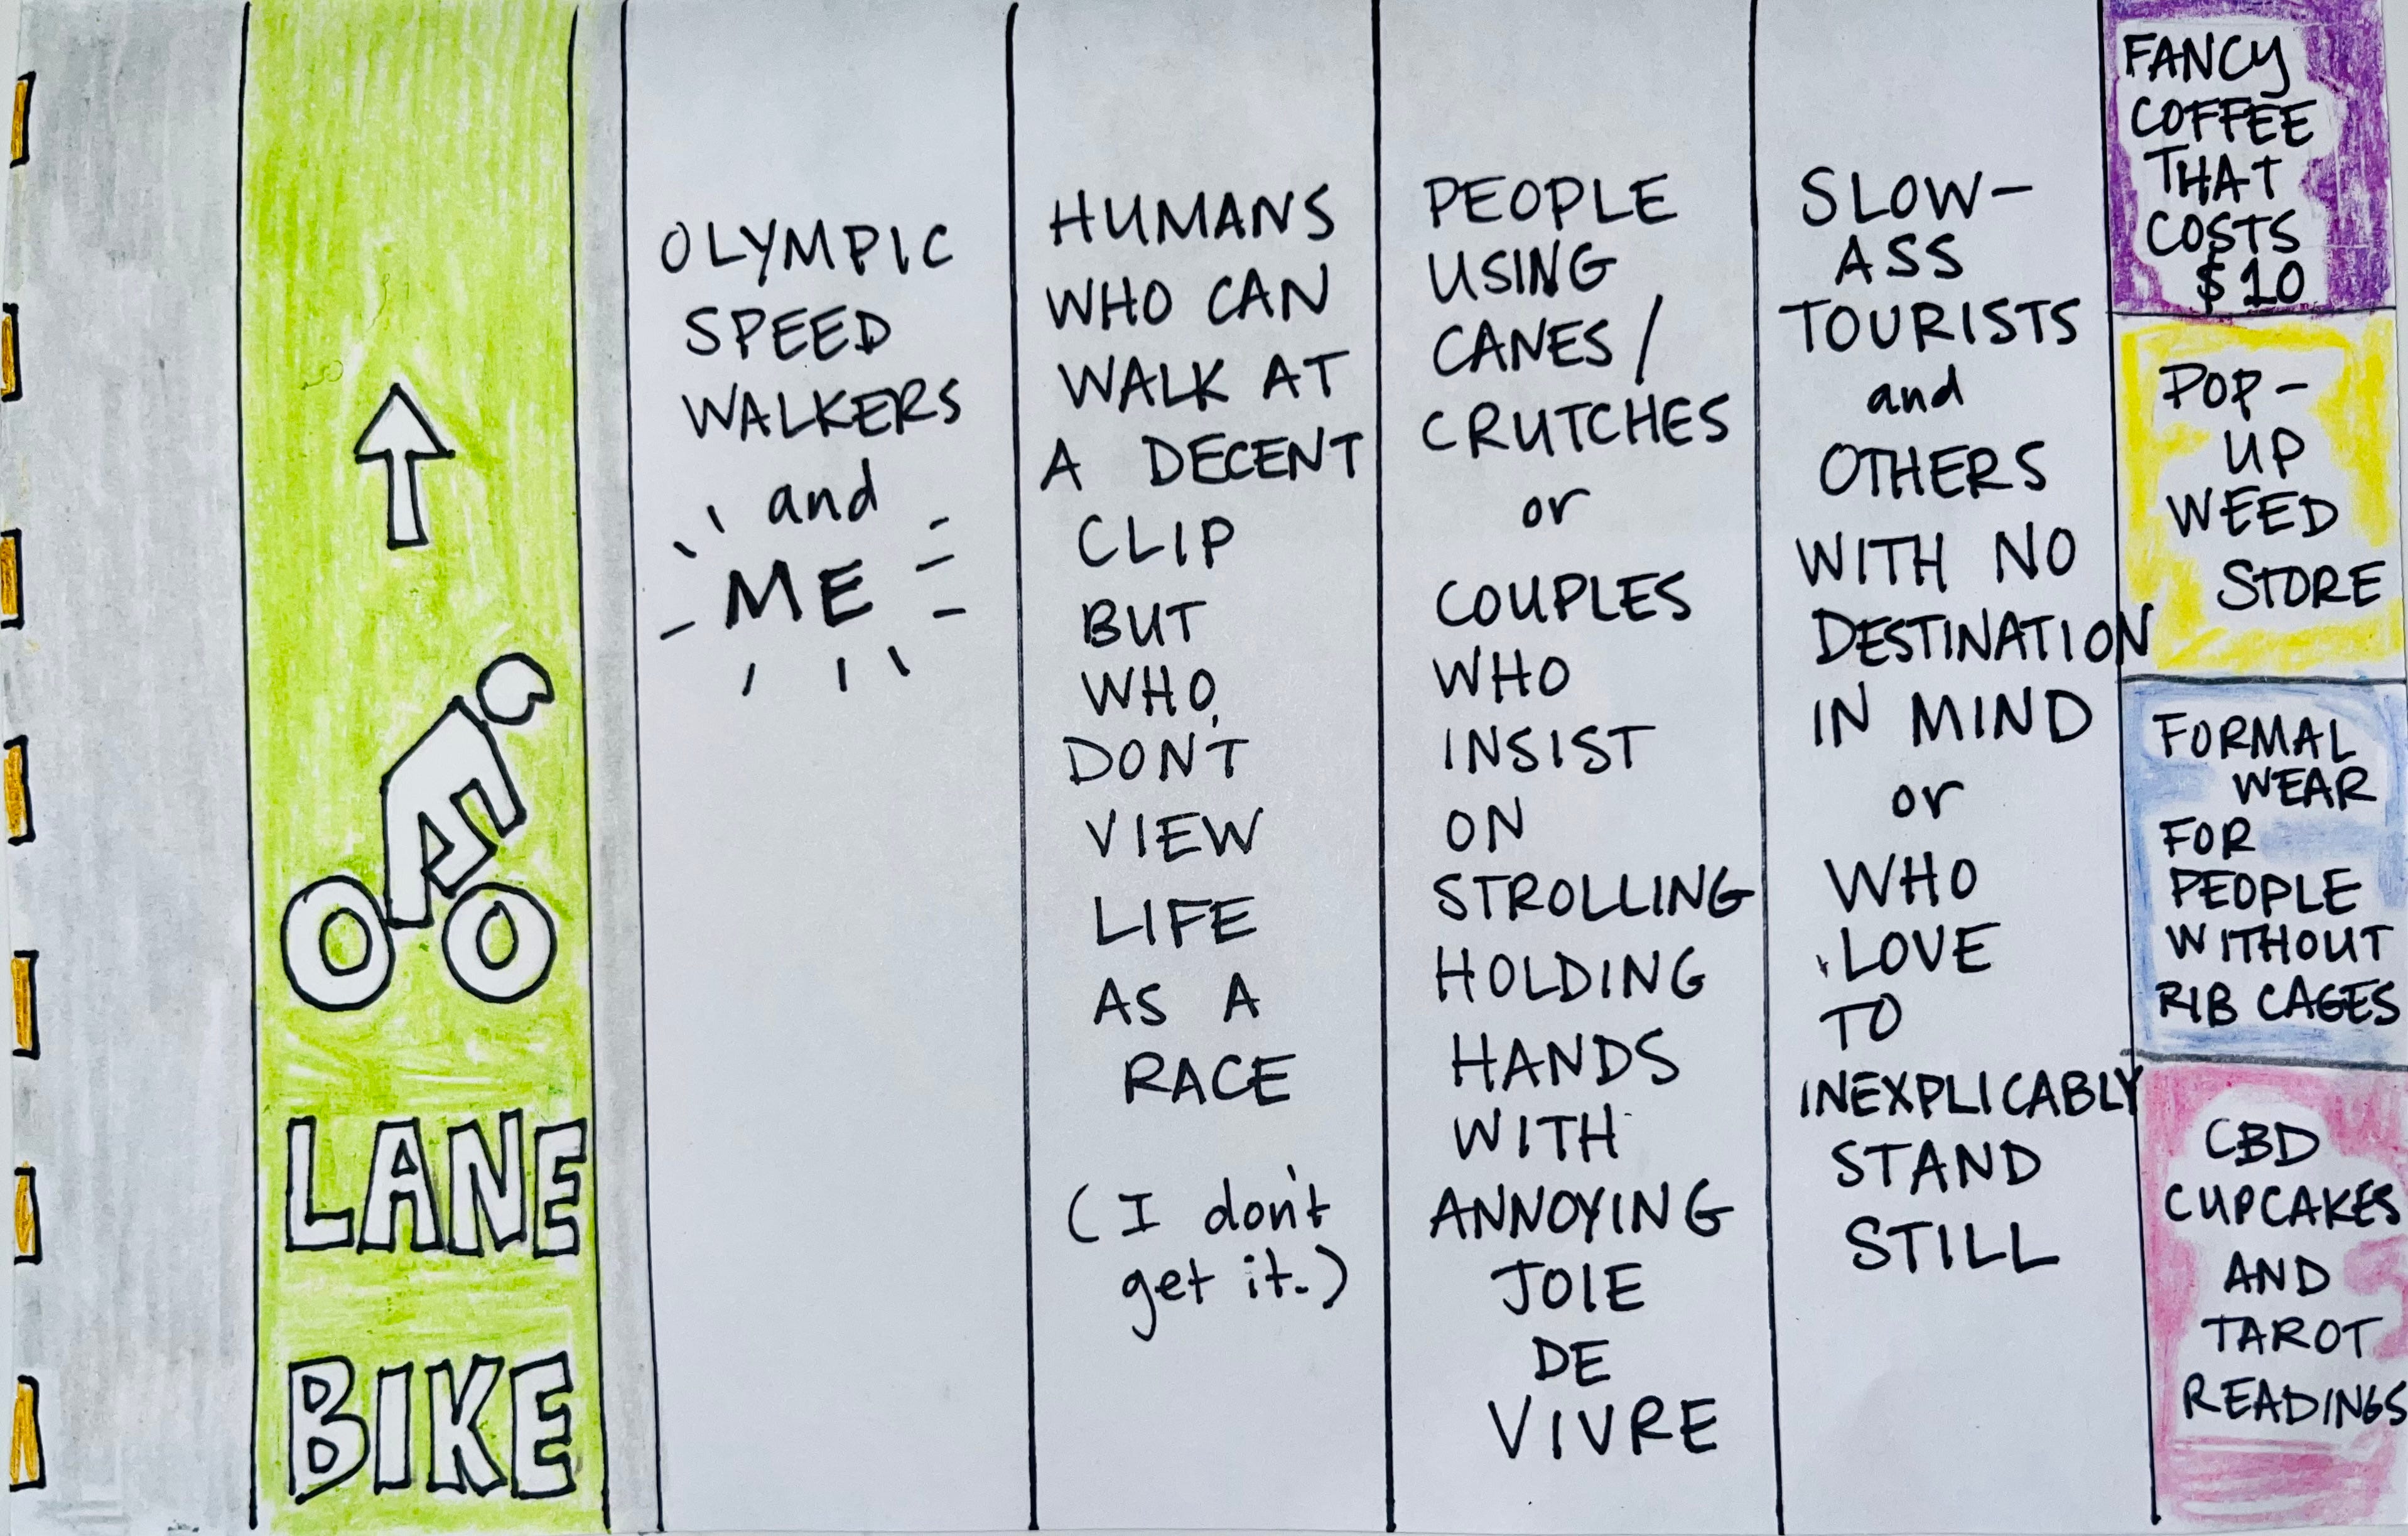 LANE
BIKE
OLYMPIC
SPEED
WALKERS
and
ME
HUMANS
WHO CAN
WALK AT
A DECENT
CLIP
BUT
WHO
DON'T
VIEW
LIFE
AS A
RACE
(I don't
get it.)
PEOPLE
USING
CANES/
CRUTCHES
or
COUPLES
WHO
INSIST
ON
STROLLING
HOLDING
HANDS
WITH
ANNOYING
JOIE
DE
VIVRE
SLOW-
ASS
TOURISTS
and
OTHERS
WITH NO
DESTINATION
IN MIND
or
WHO
LOVE
TO
INEXPLICABLY
STAND
STILL
FANCY
COFFEE
THAT
COSTS
$10
POP-
UP
WEED
STORE
FORMAL
WEAR
FOR
PEOPLE
WITHOUT
RIB CAGES
CBD
CUPCAKES
AND
TAROT
READINGS